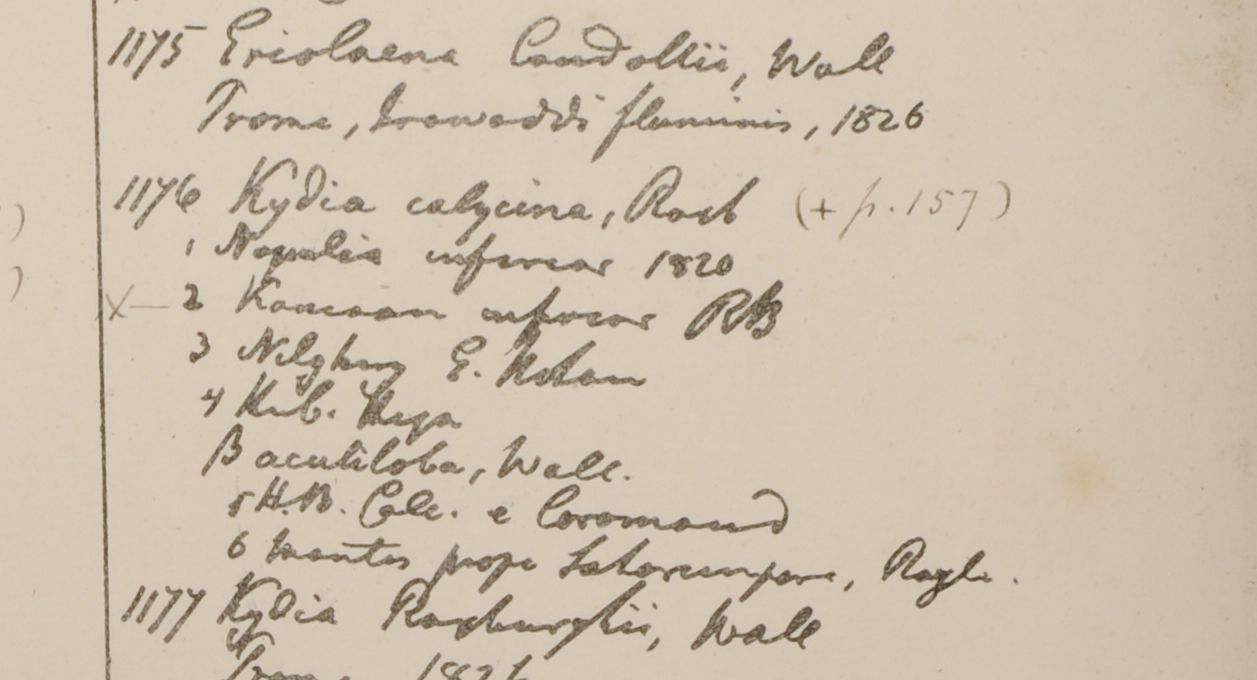 1175 Eriolaena Candollii, Wall
Prome, Irawaddi fluminis, 1826
1176 Kydia calycina, Roxb (+ p. 157)
1 Napalia inferior 1820
X— 2 Kamaon inferior RB
3 Nilghiry E. Noton
4 Herb. Heyn
β acutiloba, Wall.
5 H.B. Calc. e Coromand
6 montes prope Saharunpore, Royle.
1177 Kydia Roxburghii, Wall
Prome 1826